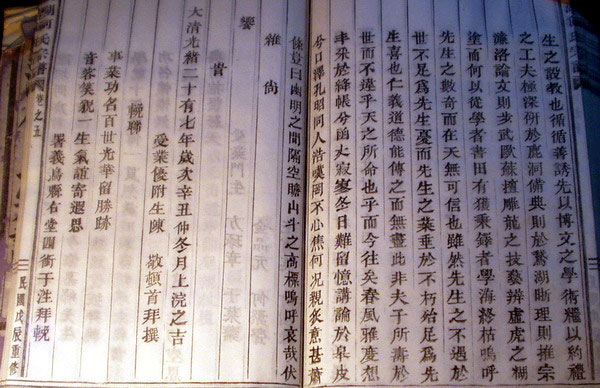 生之設教也循循善誘先以博文之學術繼以約禮
之工夫極深研於鹿洞備典則於鵝湖晰理則推宗
濂洛論文則步武歐蘇擅雕龍之技發辨虛虎之糊
塗而何以從學者書田有獲秉鐸者學海終枯嗚呼
先生之數奇而在天無可信也雖然先生之不遇於
世不足為先生憂而先生之業垂於不朽殆足為先
生喜也仁義道德能傳之而無盡此非夫子所壽於
世而不違乎天之所命也乎而今往矣春風雅度想
丰采於絳帳兮函丈寂寥冬日難留憶講論於皋皮
兮口澤孔昭同人浩嘆罔不心焦何況親炙意甚蕭
條爰曰幽明之間隔空瞻山斗之高標嗚呼哀哉伏
維尚
饗
大清光緒二十有七年歲次辛丑仲冬月上浣之吉
受業優附生陳 敬頓首拜撰
輓聯
事業功名百世光華留勝跡
音容笑貌一生氣誼寄遐思
署義烏縣右堂國衛于注拜輓
氏宗譜 卷之五
民國戊辰重修